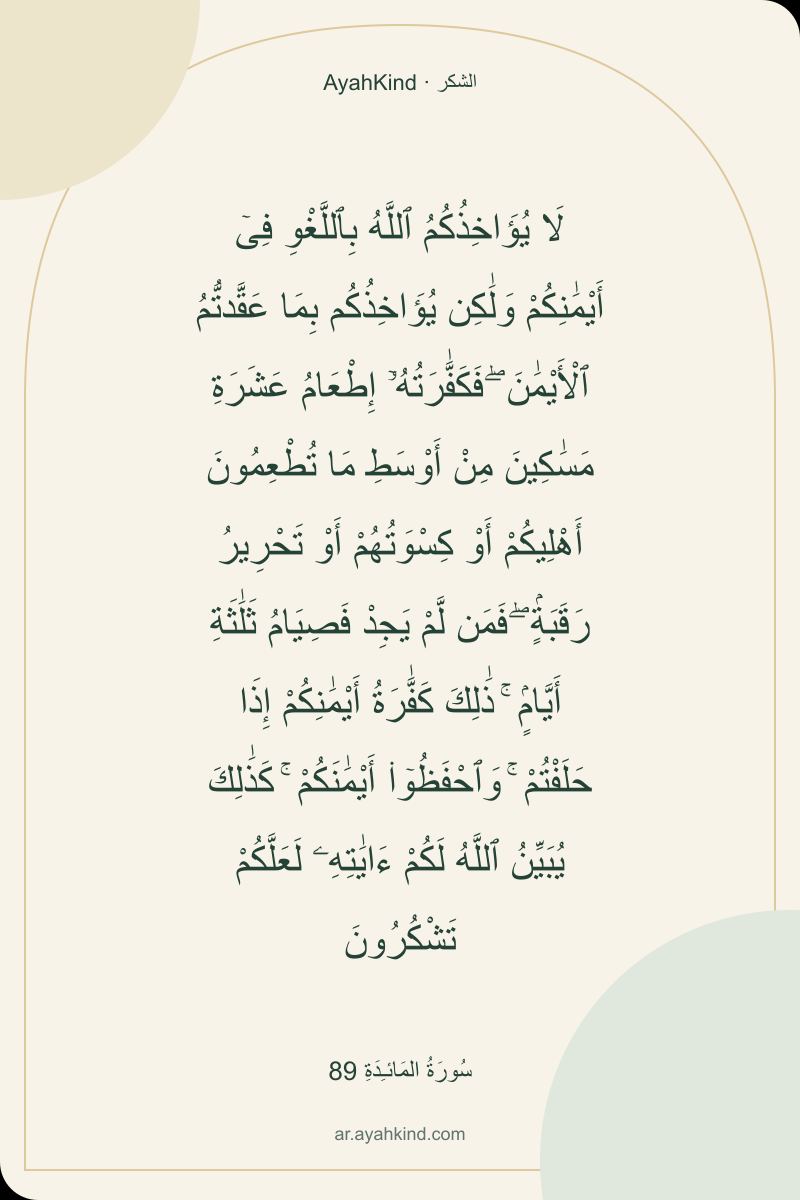 AyahKind · الشكر
لَا يُؤَاخِذُكُمُ ٱللَّهُ بِٱللَّغْوِ فِىٓ
أَيْمَـٰنِكُمْ وَلَـٰكِن يُؤَاخِذُكُم بِمَا عَقَّدتُّمُ
ٱلْأَيْمَـٰنَ ۖ فَكَفَّـٰرَتُهُۥٓ إِطْعَامُ عَشَرَةِ
مَسَـٰكِينَ مِنْ أَوْسَطِ مَا تُطْعِمُونَ
أَهْلِيكُمْ أَوْ كِسْوَتُهُمْ أَوْ تَحْرِيرُ
رَقَبَةٍۢ ۖ فَمَن لَّمْ يَجِدْ فَصِيَامُ ثَلَـٰثَةِ
أَيَّامٍۢ ۚ ذَٰلِكَ كَفَّـٰرَةُ أَيْمَـٰنِكُمْ إِذَا
حَلَفْتُمْ ۚ وَٱحْفَظُوٓا۟ أَيْمَـٰنَكُمْ ۚ كَذَٰلِكَ
يُبَيِّنُ ٱللَّهُ لَكُمْ ءَايَـٰتِهِۦ لَعَلَّكُمْ
تَشْكُرُونَ
سُورَةُ المَائـِدَةِ 89
ar.ayahkind.com